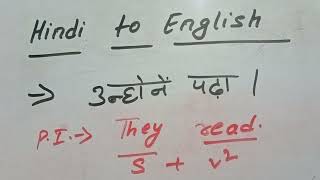 Hindi to English
→ उन्होनें पढ़ा ।
P.I.→ They read.
S + V²